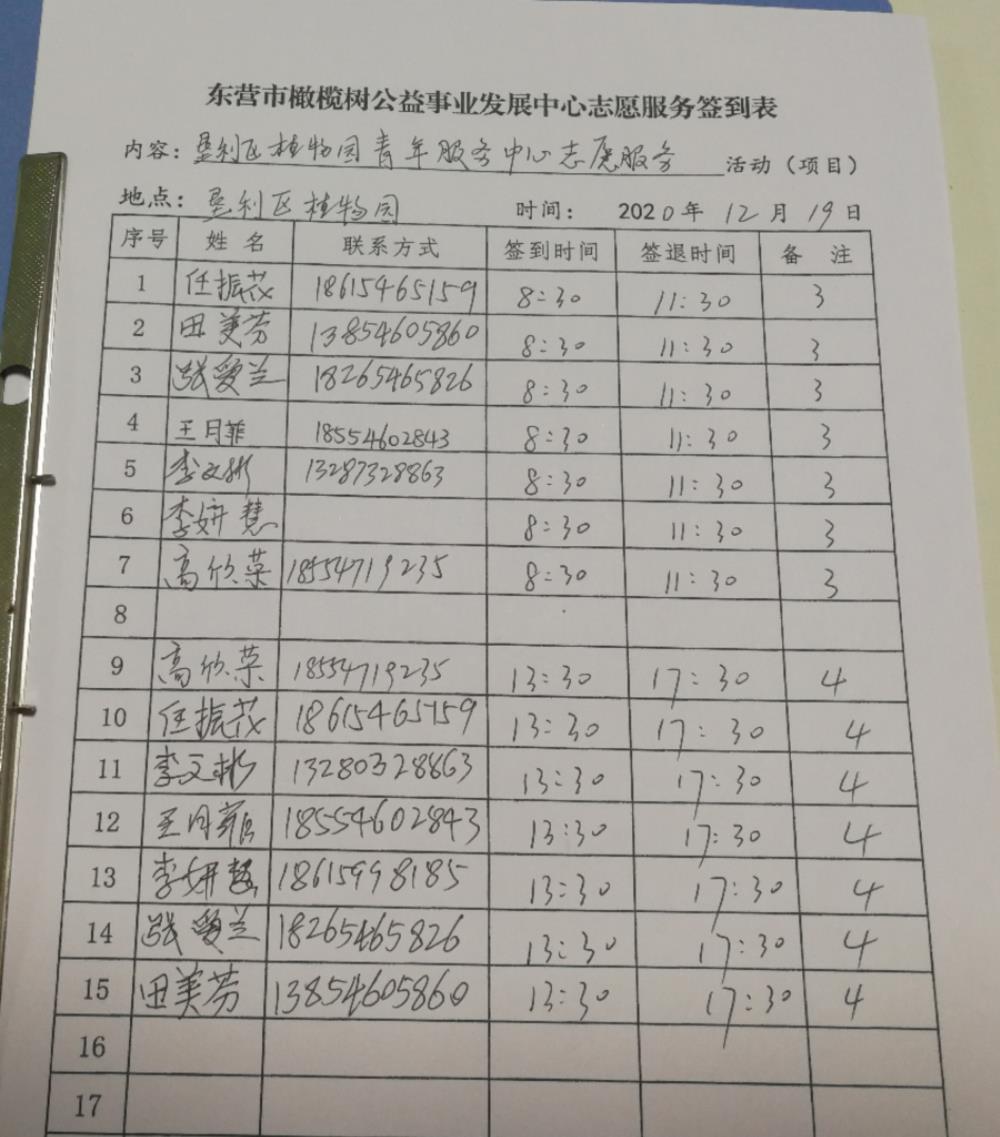 东营市橄榄树公益事业发展中心志愿服务签到表
内容：垦利区植物园青年服务中心志愿服务 活动（项目）
地点：垦利区植物园 时间： 2020年12月19日
序号 姓名 联系方式 签到时间 签退时间 备 注
1 任振茂 18615465159 8:30 11:30 3
2 田美芳 13854605860 8:30 11:30 3
3 张爱兰 18265465826 8:30 11:30 3
4 王月菲 18554602843 8:30 11:30 3
5 李文彬 13287328863 8:30 11:30 3
6 李妍慧 8:30 11:30 3
7 高欣荣 18554719235 8:30 11:30 3
8
9 高欣荣 18554719235 13:30 17:30 4
10 任振茂 18615465159 13:30 17:30 4
11 李文彬 13280328863 13:30 17:30 4
12 王月菲 18554602843 13:30 17:30 4
13 李妍慧 18615998185 13:30 17:30 4
14 张爱兰 18265465826 13:30 17:30 4
15 田美芳 13854605860 13:30 17:30 4
16
17